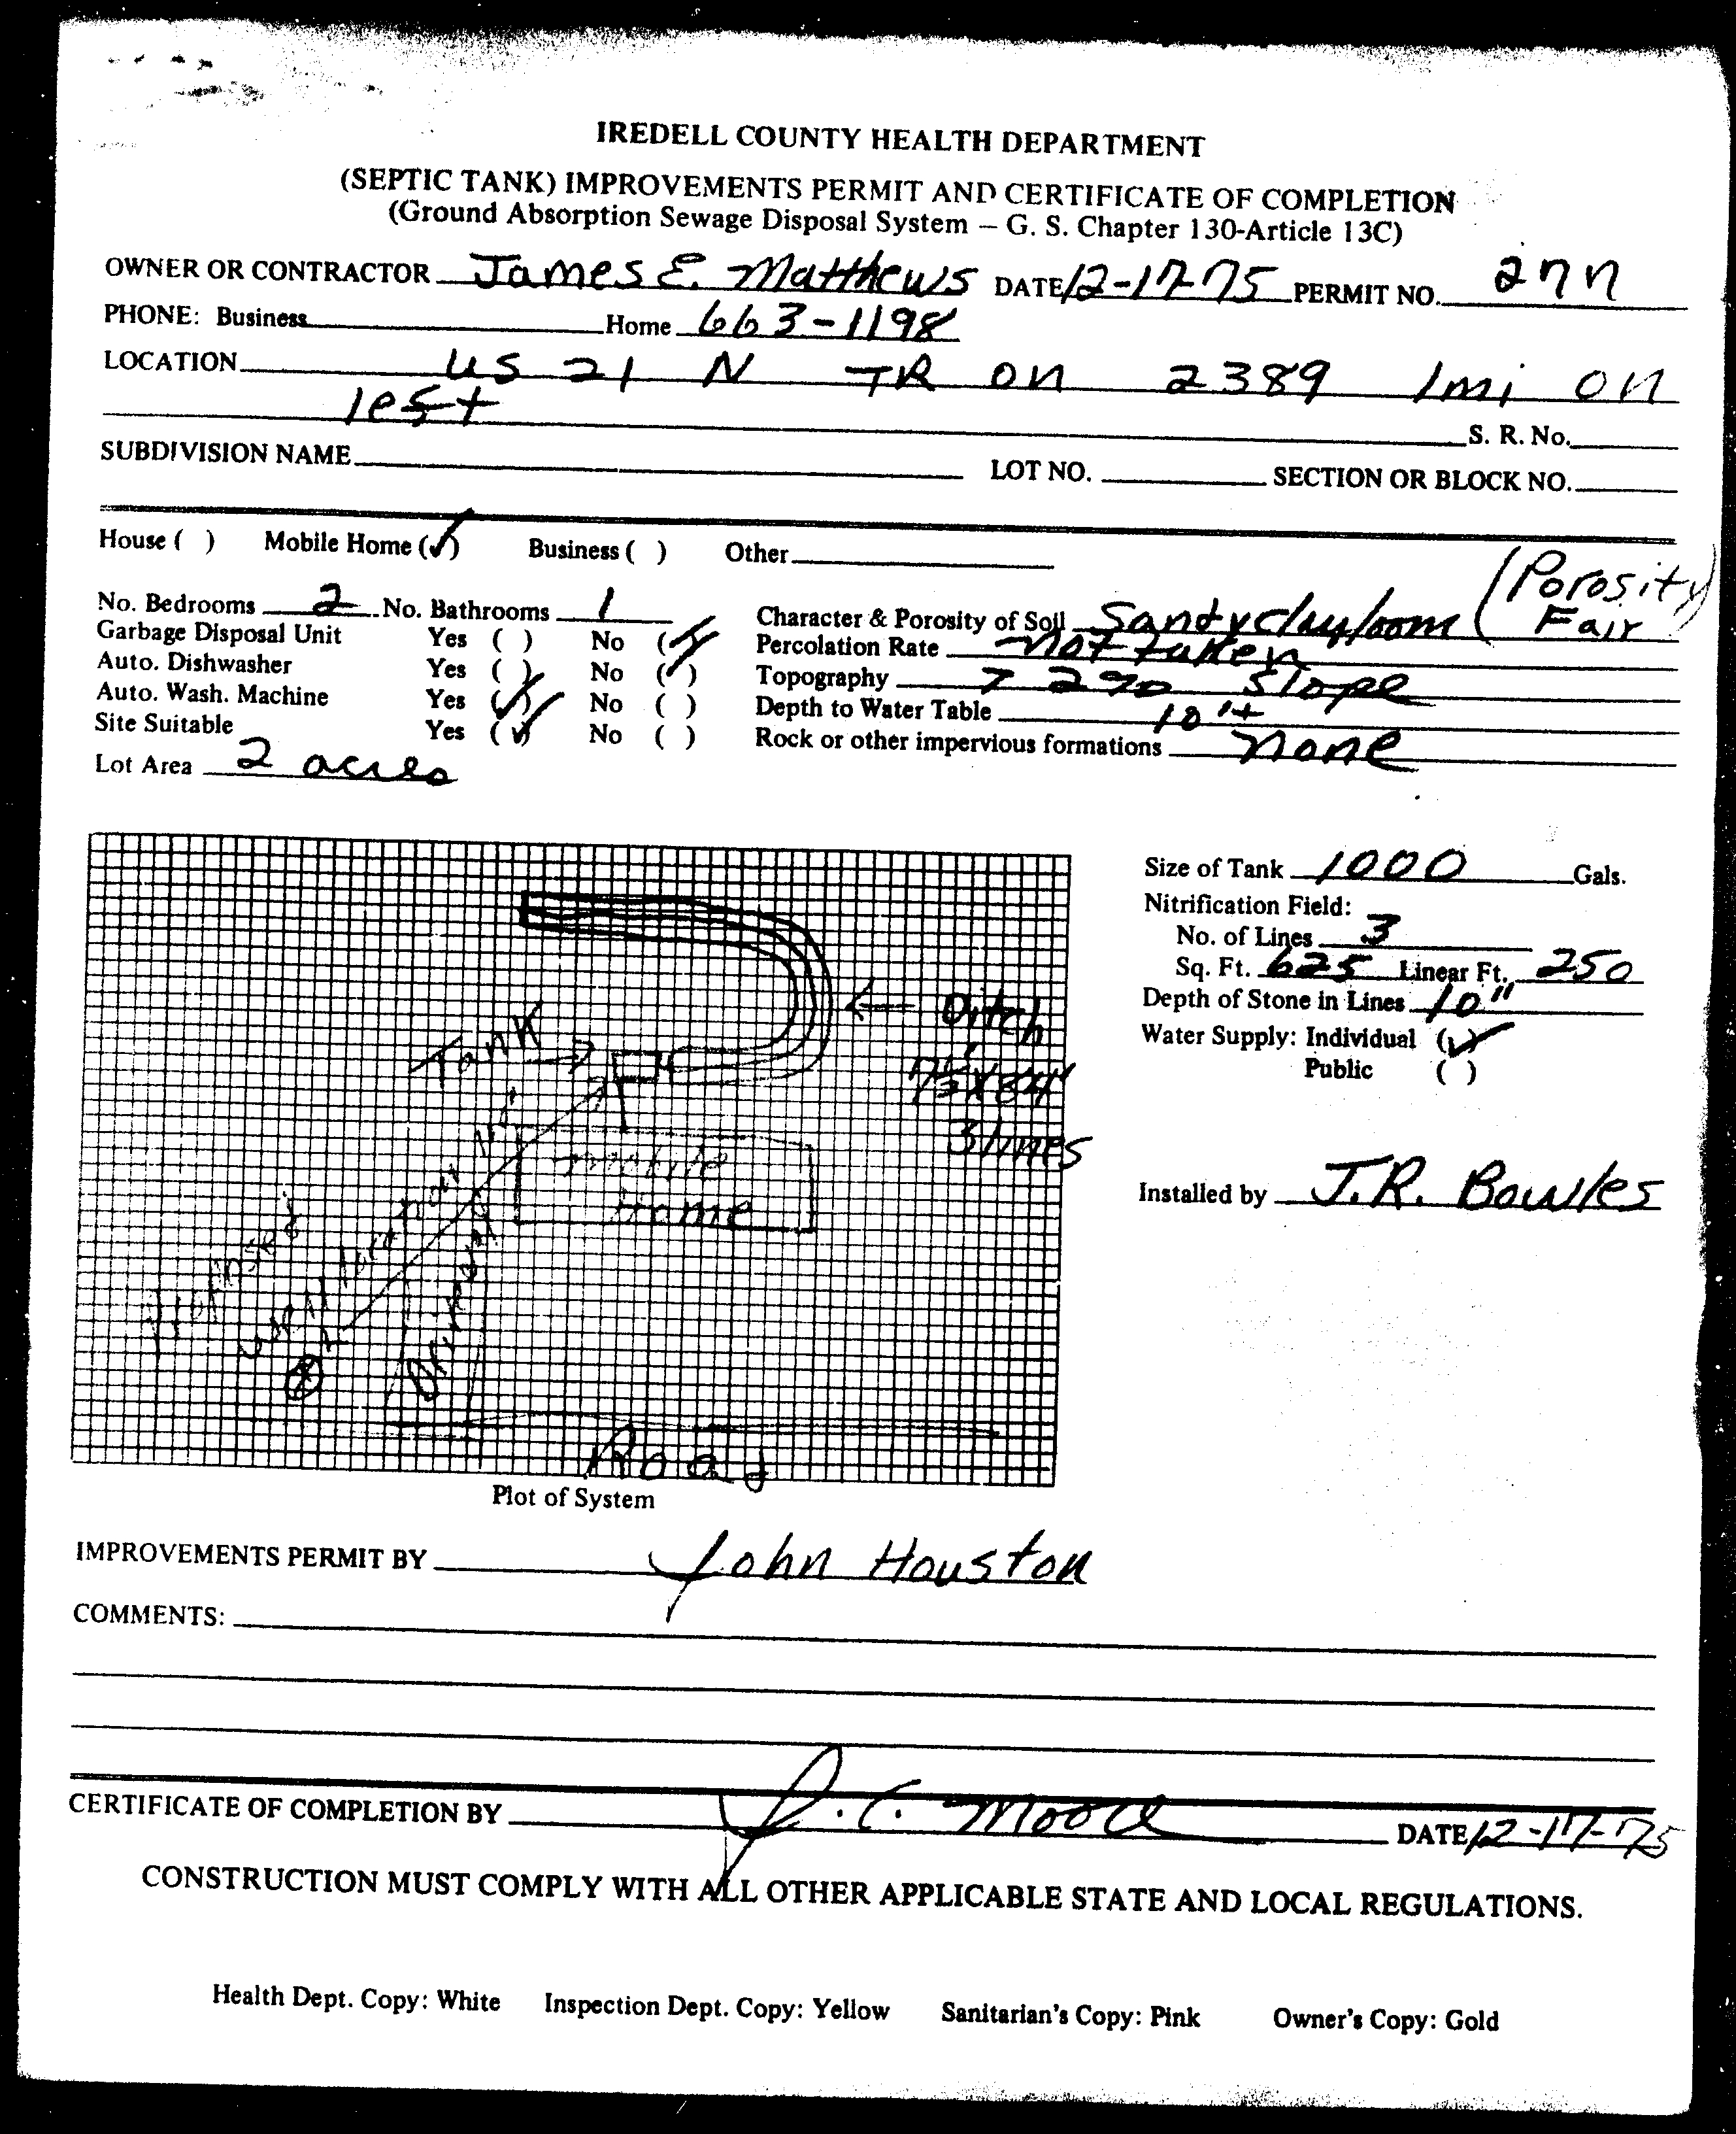 IREDELL COUNTY HEALTH DEPARTMENT
(SEPTIC TANK) IMPROVEMENTS PERMIT AND CERTIFICATE OF COMPLETION
(Ground Absorption Sewage Disposal System – G. S. Chapter 130-Article 13C)
OWNER OR CONTRACTOR James E. Matthews DATE 12-17-75 PERMIT NO. 277
PHONE: Business Home 663-1198
LOCATION US 21 N TR on 2389 1mi on
left
S. R. No.
SUBDIVISION NAME LOT NO. SECTION OR BLOCK NO.
House ( ) Mobile Home (✓) Business ( ) Other
(Porosity
No. Bedrooms 2 No. Bathrooms 1 Character & Porosity of Soil Sandy clay loom Fair)
Garbage Disposal Unit Yes ( ) No (✓) Percolation Rate not taken
Auto. Dishwasher Yes ( ) No (✓) Topography 7 2% Slope
Auto. Wash. Machine Yes (✓) No ( ) Depth to Water Table 10'+
Site Suitable Yes (✓) No ( ) Rock or other impervious formations none
Lot Area 2 acres
Size of Tank 1000 Gals.
Nitrification Field:
No. of Lines 3
Sq. Ft. 625 Linear Ft. 250
Depth of Stone in Lines 10"
Water Supply: Individual (✓)
Public ( )
Installed by J.R. Bowles
Tank
Ditch
3 lines
mobile
home
Proposed
well
Driveway
Road
Plot of System
IMPROVEMENTS PERMIT BY John Houston
COMMENTS:
CERTIFICATE OF COMPLETION BY J.C. Mood DATE 12-17-75
CONSTRUCTION MUST COMPLY WITH ALL OTHER APPLICABLE STATE AND LOCAL REGULATIONS.
Health Dept. Copy: White Inspection Dept. Copy: Yellow Sanitarian's Copy: Pink Owner's Copy: Gold